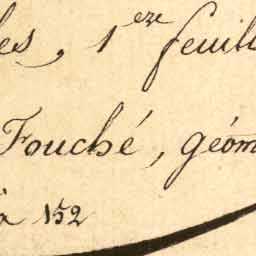 les, 1ere feuill
Fouché, géom
à 152